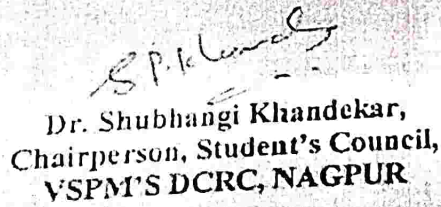 S P. Khand
Dr. Shubhangi Khandekar,
Chairperson, Student's Council,
VSPM'S DCRC, NAGPUR